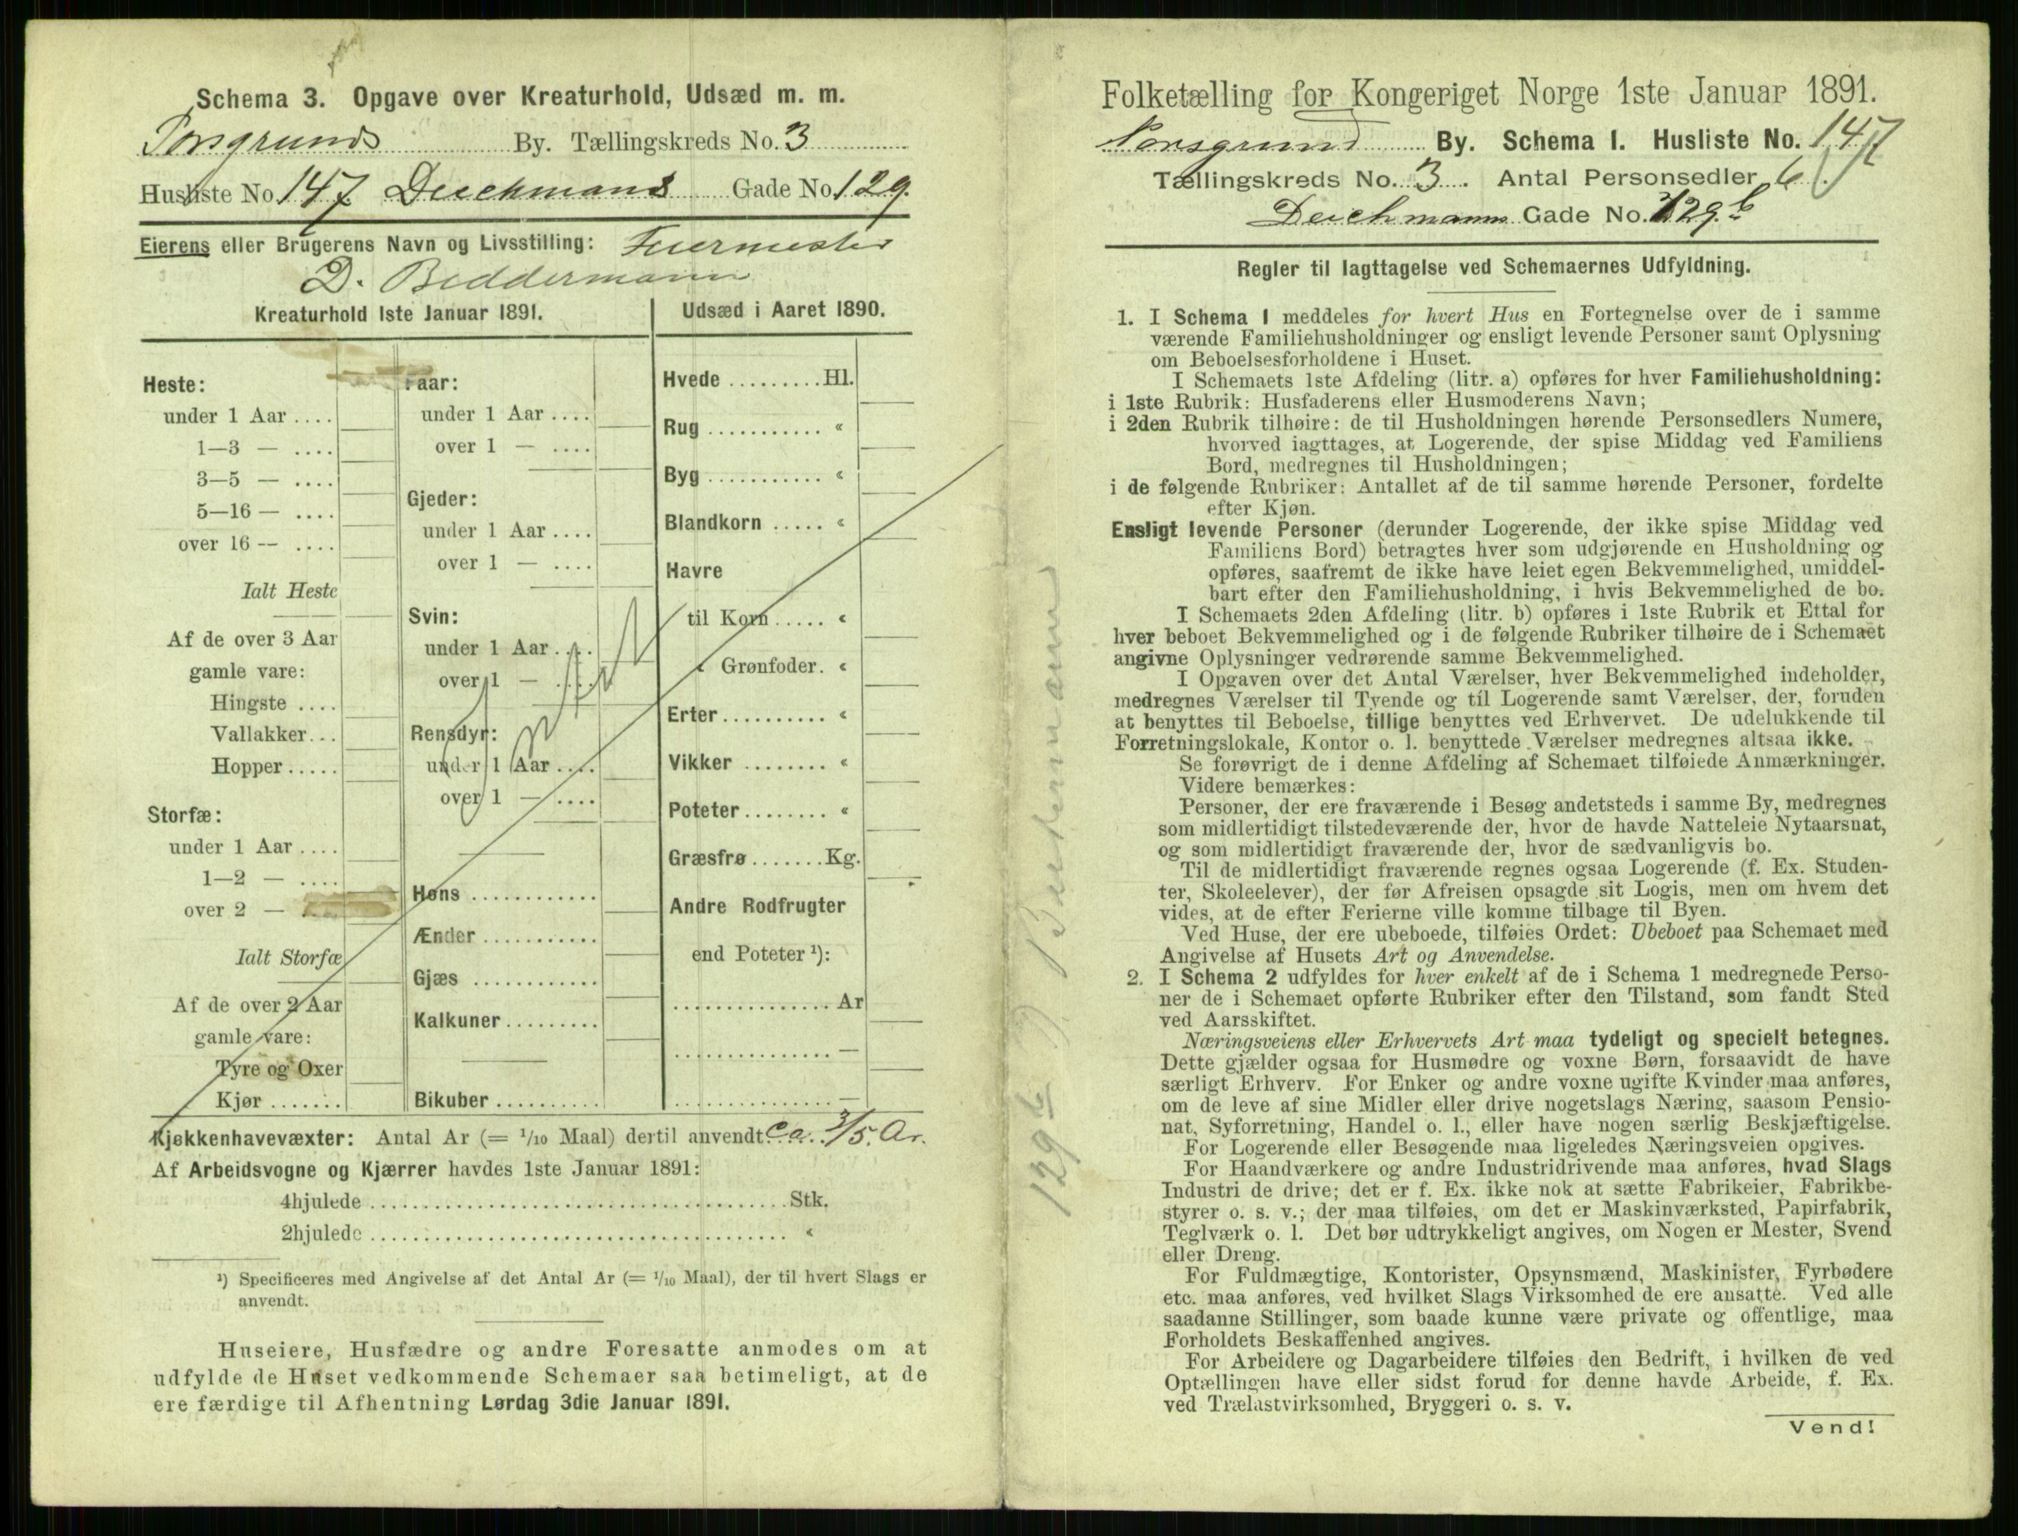 Schema 3. Opgave over Kreaturhold, Udsæd m. m.
Porsgrunds By. Tællingskreds No. 3
Husliste No. 147. Deichmans Gade No. 129.
Eierens eller Brugerens Navn og Livsstilling: Feiermester
D. Beddermann
Kreaturhold 1ste Januar 1891.
Heste:
under 1 Aar ....
1—3 — ....
3—5 — ....
5—16 — ....
over 16 — ....
Ialt Heste
Af de over 3 Aar
gamle vare:
Hingste ....
Vallakker...
Hopper.....
Storfæ:
under 1 Aar ....
1—2 — ....
over 2 —
Ialt Storfæ
Af de over 2 Aar
gamle vare:
Tyre og Oxer
Kjør.......
Faar:
under 1 Aar ....
over 1 — ....
Gjeder:
under 1 Aar ....
over 1 — ....
Svin:
under 1 Aar ....
over 1 — ....
Rensdyr:
under 1 Aar ....
over 1 — ....
Høns............
Ænder...........
Gjæs............
Kalkuner.........
Bikuber..........
Udsæd i Aaret 1890.
Hvede.........Hl.
Rug........... «
Byg........... «
Blandkorn ..... «
Havre
til Korn..... «
« Grønfoder. «
Erter.......... «
Vikker ........ «
Poteter........ «
Græsfrø.......Kg.
Andre Rodfrugter
end Poteter ¹):
................Ar
................—
................—
Kjøkkenhavevæxter: Antal Ar (= 1/10 Maal) dertil anvendt ca. 3/5. Ar.
Af Arbeidsvogne og Kjærrer havdes 1ste Januar 1891:
4hjulede.....................................Stk.
2hjulede..................................... «
¹) Specificeres med Angivelse af det Antal Ar (= 1/10 Maal), der til hvert Slags er
anvendt.
Huseiere, Husfædre og andre Foresatte anmodes om at
udfylde de Huset vedkommende Schemaer saa betimeligt, at de
ere færdige til Afhentning Lørdag 3die Januar 1891.
129 b D. Beddermann
Folketælling for Kongeriget Norge 1ste Januar 1891.
Porsgrund By. Schema I. Husliste No. 147
Tællingskreds No. 3. Antal Personsedler 6.
Deichmanns Gade No. 129 b
Regler til Iagttagelse ved Schemaernes Udfyldning.
1. I Schema I meddeles for hvert Hus en Fortegnelse over de i samme
værende Familiehusholdninger og ensligt levende Personer samt Oplysning
om Beboelsesforholdene i Huset.
I Schemaets 1ste Afdeling (litr. a) opføres for hver Familiehusholdning:
i 1ste Rubrik: Husfaderens eller Husmoderens Navn;
i 2den Rubrik tilhøire: de til Husholdningen hørende Personsedlers Numere,
hvorved iagttages, at Logerende, der spise Middag ved Familiens
Bord, medregnes til Husholdningen;
i de følgende Rubriker: Antallet af de til samme hørende Personer, fordelte
efter Kjøn.
Ensligt levende Personer (derunder Logerende, der ikke spise Middag ved
Familiens Bord) betragtes hver som udgjørende en Husholdning og
opføres, saafremt de ikke have leiet egen Bekvemmelighed, umiddel-
bart efter den Familiehusholdning, i hvis Bekvemmelighed de bo.
I Schemaets 2den Afdeling (litr. b) opføres i 1ste Rubrik et Ettal for
hver beboet Bekvemmelighed og i de følgende Rubriker tilhøire de i Schemaet
angivne Oplysninger vedrørende samme Bekvemmelighed.
I Opgaven over det Antal Værelser, hver Bekvemmelighed indeholder,
medregnes Værelser til Tyende og til Logerende samt Værelser, der, foruden
at benyttes til Beboelse, tillige benyttes ved Erhvervet. De udelukkende til
Forretningslokale, Kontor o. l. benyttede Værelser medregnes altsaa ikke.
Se forøvrigt de i denne Afdeling af Schemaet tilføiede Anmærkninger.
Videre bemærkes:
Personer, der ere fraværende i Besøg andetsteds i samme By, medregnes
som midlertidigt tilstedeværende der, hvor de havde Natteleie Nytaarsnat,
og som midlertidigt fraværende der, hvor de sædvanligvis bo.
Til de midlertidigt fraværende regnes ogsaa Logerende (f. Ex. Studen-
ter, Skoleelever), der før Afreisen opsagde sit Logis, men om hvem det
vides, at de efter Ferierne ville komme tilbage til Byen.
Ved Huse, der ere ubeboede, tilføies Ordet: Ubeboet paa Schemaet med
Angivelse af Husets Art og Anvendelse.
2. I Schema 2 udfyldes for hver enkelt af de i Schema 1 medregnede Perso-
ner de i Schemaet opførte Rubriker efter den Tilstand, som fandt Sted
ved Aarsskiftet.
Næringsveiens eller Erhvervets Art maa tydeligt og specielt betegnes.
Dette gjælder ogsaa for Husmødre og voxne Børn, forsaavidt de have
særligt Erhverv. For Enker og andre voxne ugifte Kvinder maa anføres,
om de leve af sine Midler eller drive nogetslags Næring, saasom Pensio-
nat, Syforretning, Handel o. l., eller have nogen særlig Beskjæftigelse.
For Logerende eller Besøgende maa ligeledes Næringsveien opgives.
For Haandværkere og andre Industridrivende maa anføres, hvad Slags
Industri de drive; det er f. Ex. ikke nok at sætte Fabrikeier, Fabrikbe-
styrer o. s. v.; der maa tilføies, om det er Maskinværksted, Papirfabrik,
Teglværk o. l. Det bør udtrykkeligt angives, om Nogen er Mester, Svend
eller Dreng.
For Fuldmægtige, Kontorister, Opsynsmænd, Maskinister, Fyrbødere
etc. maa anføres, ved hvilket Slags Virksomhed de ere ansatte. Ved alle
saadanne Stillinger, som baade kunne være private og offentlige, maa
Forholdets Beskaffenhed angives.
For Arbeidere og Dagarbeidere tilføies den Bedrift, i hvilken de ved
Optællingen have eller sidst forud for denne havde Arbeide, f. Ex.
ved Trælastvirksomhed, Bryggeri o. s. v.
Vend!